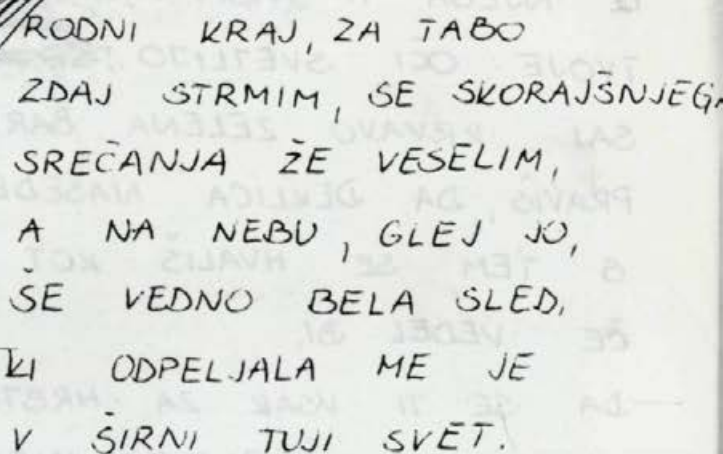 RODNI KRAJ, ZA TABO
ZDAJ STRMIM, SE SKORAJŠNJEGA
SREČANJA ŽE VESELIM,
A NA NEBU, GLEJ JO,
ŠE VEDNO BELA SLED,
KI ODPELJALA ME JE
V ŠIRNI TUJI SVET.